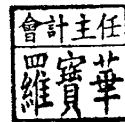 會計主任
羅寶華